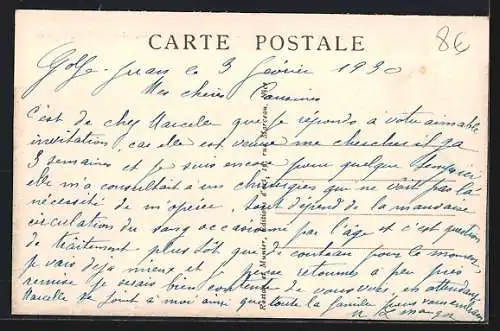 CARTE POSTALE
8€
Golfe-Juan le 3 février 1930
Mes chères Cousines
C'est de chez Marcelle que je réponds à votre aimable
invitation, car elle est venue me chercher il y a
3 semaines et je suis encore pour quelque temps ici
elle m'a consultait à un chirurgien qui ne voit pas la
nécessité de m'opérer, tout dépend de la mauvaise
circulation du sang occasionné par l'âge et c'est question
de traitement plus tôt que de couteau pour le moment
je vais déjà mieux et pense retourner à peu près
remise je serais bien contente de vous voir, en attendant
Marcelle se joint à moi ainsi que toute la famille pour vous embrasser